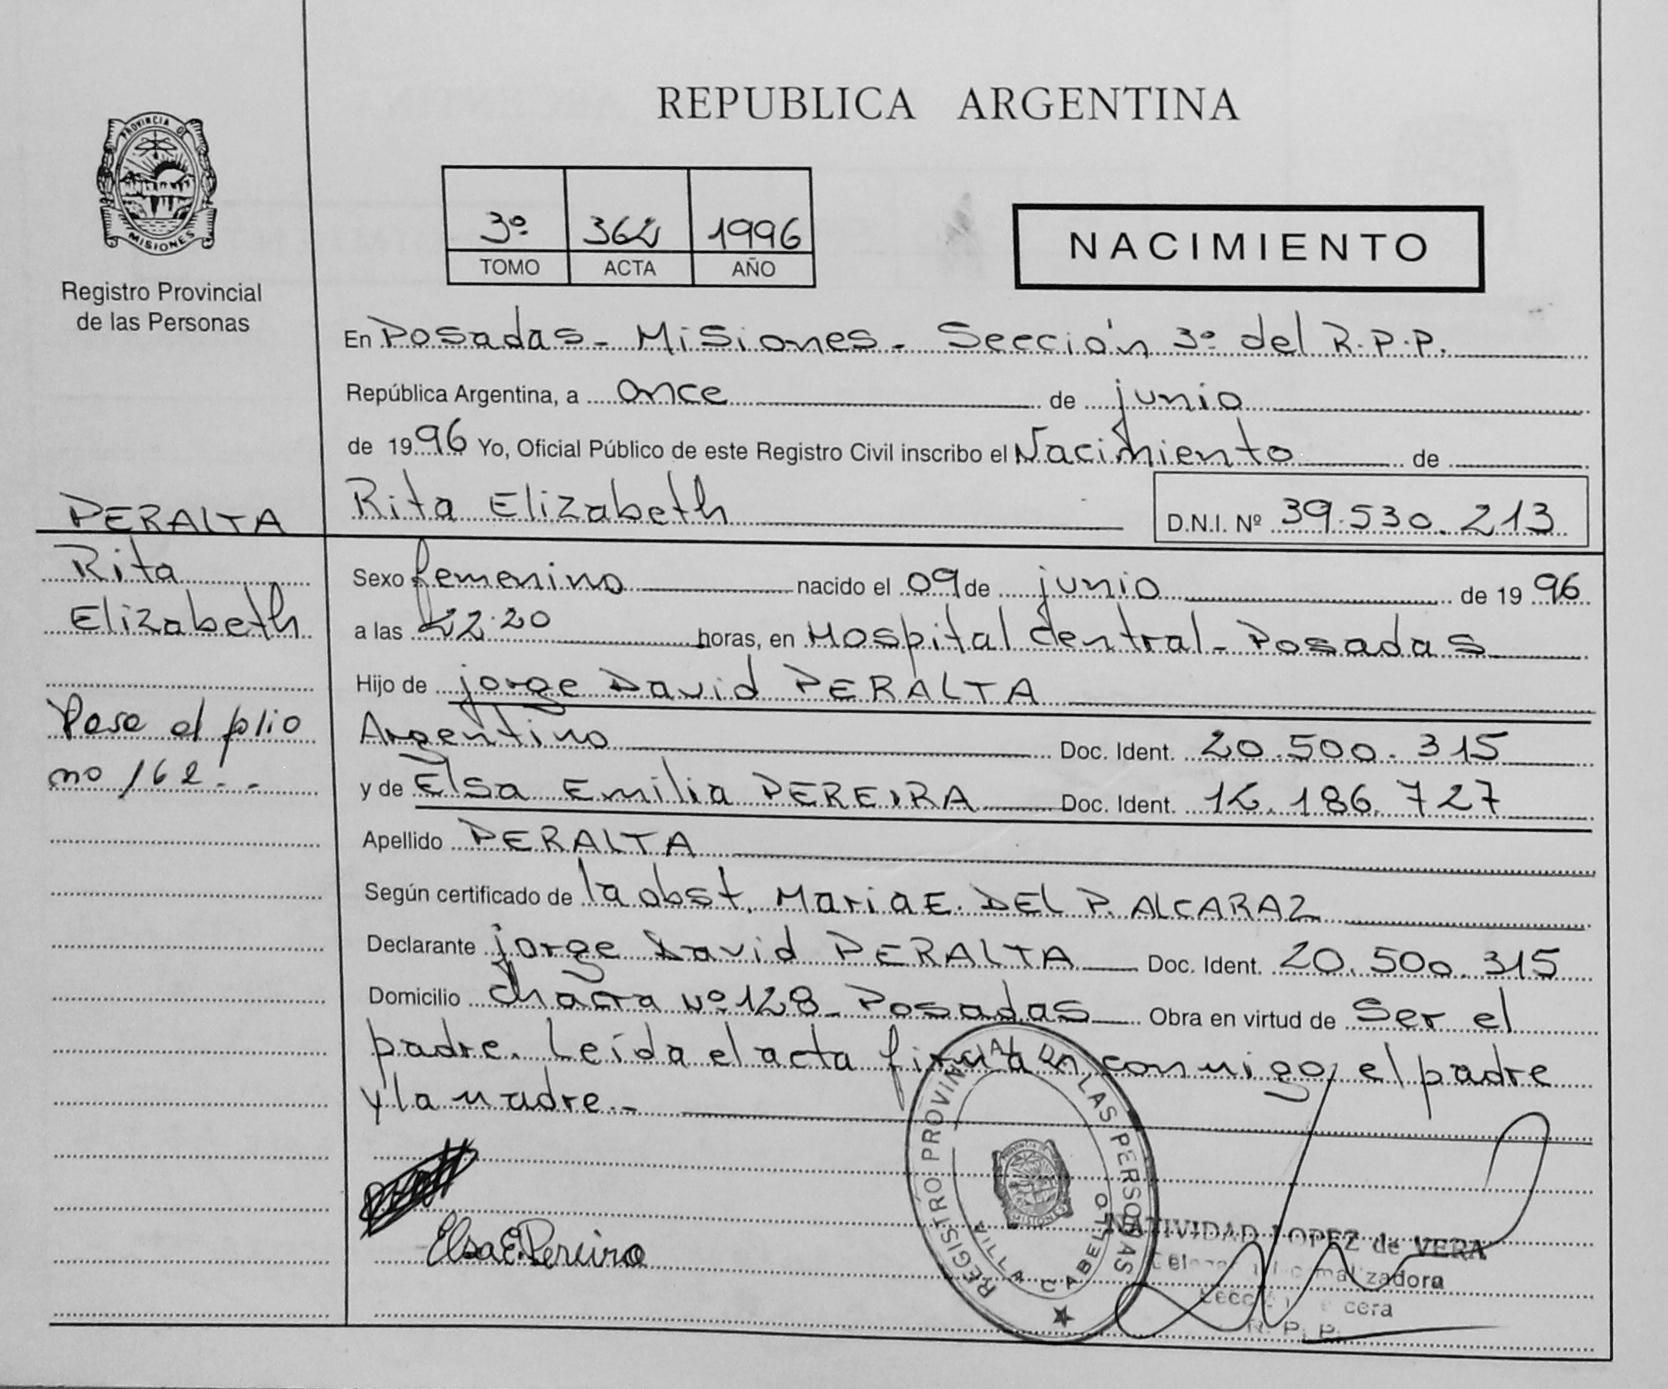 REPUBLICA ARGENTINA
PROVINCIA DE
MISIONES
Registro Provincial
de las Personas
3º 362 1996
TOMO ACTA AÑO
NACIMIENTO
En Posadas - Misiones - Sección 3º del R.P.P.
República Argentina, a once de junio
de 1996 Yo, Oficial Público de este Registro Civil inscribo el Nacimiento de
Rita Elizabeth D.N.I. Nº 39.530.213
PERALTA
Rita
Elizabeth
Pase al folio
no 162 --
Sexo femenino nacido el 09 de junio de 1996
a las 22.20 horas, en Hospital Central - Posadas
Hijo de jorge David PERALTA
Argentino Doc. Ident. 20.500.315
y de Elsa Emilia PEREIRA Doc. Ident. 16.186.727
Apellido PERALTA
Según certificado de la obst. Maria E. DEL P. ALCARAZ
Declarante jorge David PERALTA Doc. Ident. 20.500.315
Domicilio chacra Nº 128 - Posadas Obra en virtud de Ser el
padre. Leída el acta firman conmigo el padre
y la madre.-
Elsa E. Pereira
REGISTRO PROVINCIAL DE LAS PERSONAS
VILLA CABELLO
MISIONES
NATIVIDAD LOPEZ de VERA
R. P. P.